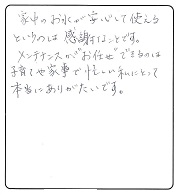 家中のお水が安心して使える
というのは感謝すべきことです。
メンテナンスが"お任せ"できるのは
子育てや家事で忙しい私にとって
本当にありがたいです。